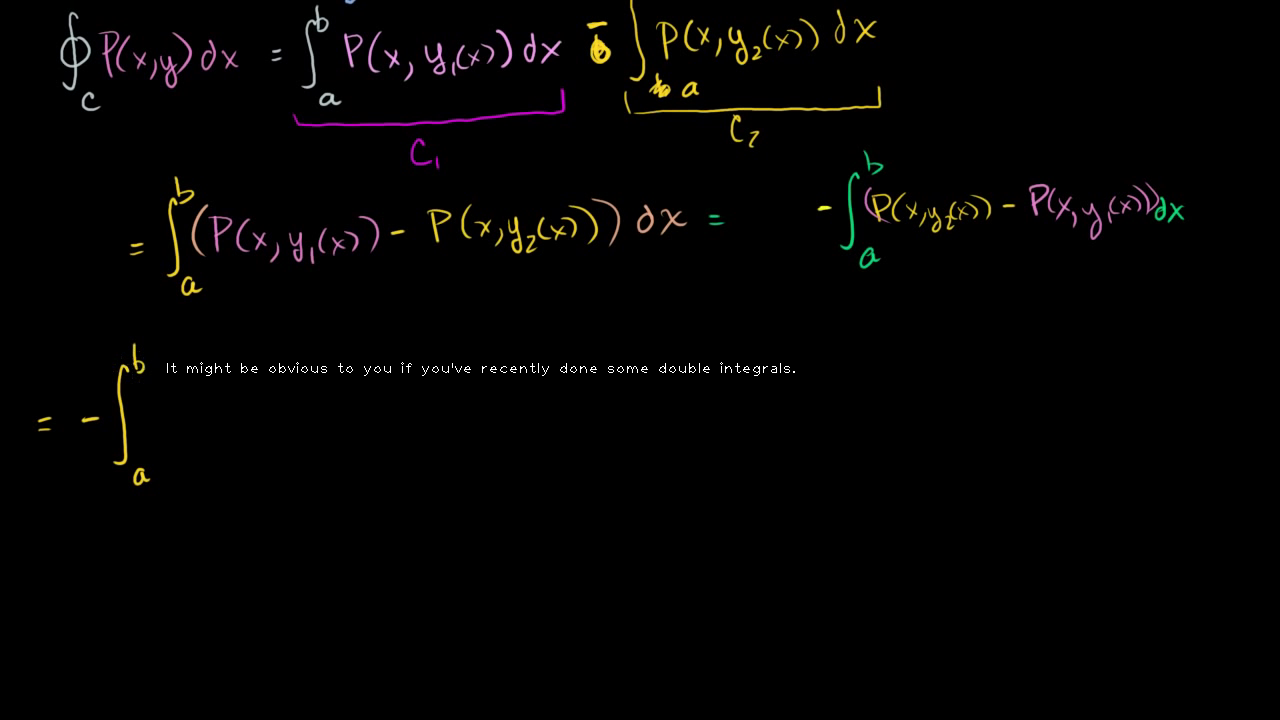 ∮_C P(x,y) dx = ∫_a^b P(x, y₁(x)) dx - ∫_a P(x, y₂(x)) dx
C₁ C₂
= ∫_a^b (P(x, y₁(x)) - P(x, y₂(x))) dx = - ∫_a^b (P(x, y₂(x)) - P(x, y₁(x))) dx
It might be obvious to you if you've recently done some double integrals.
= - ∫_a^b